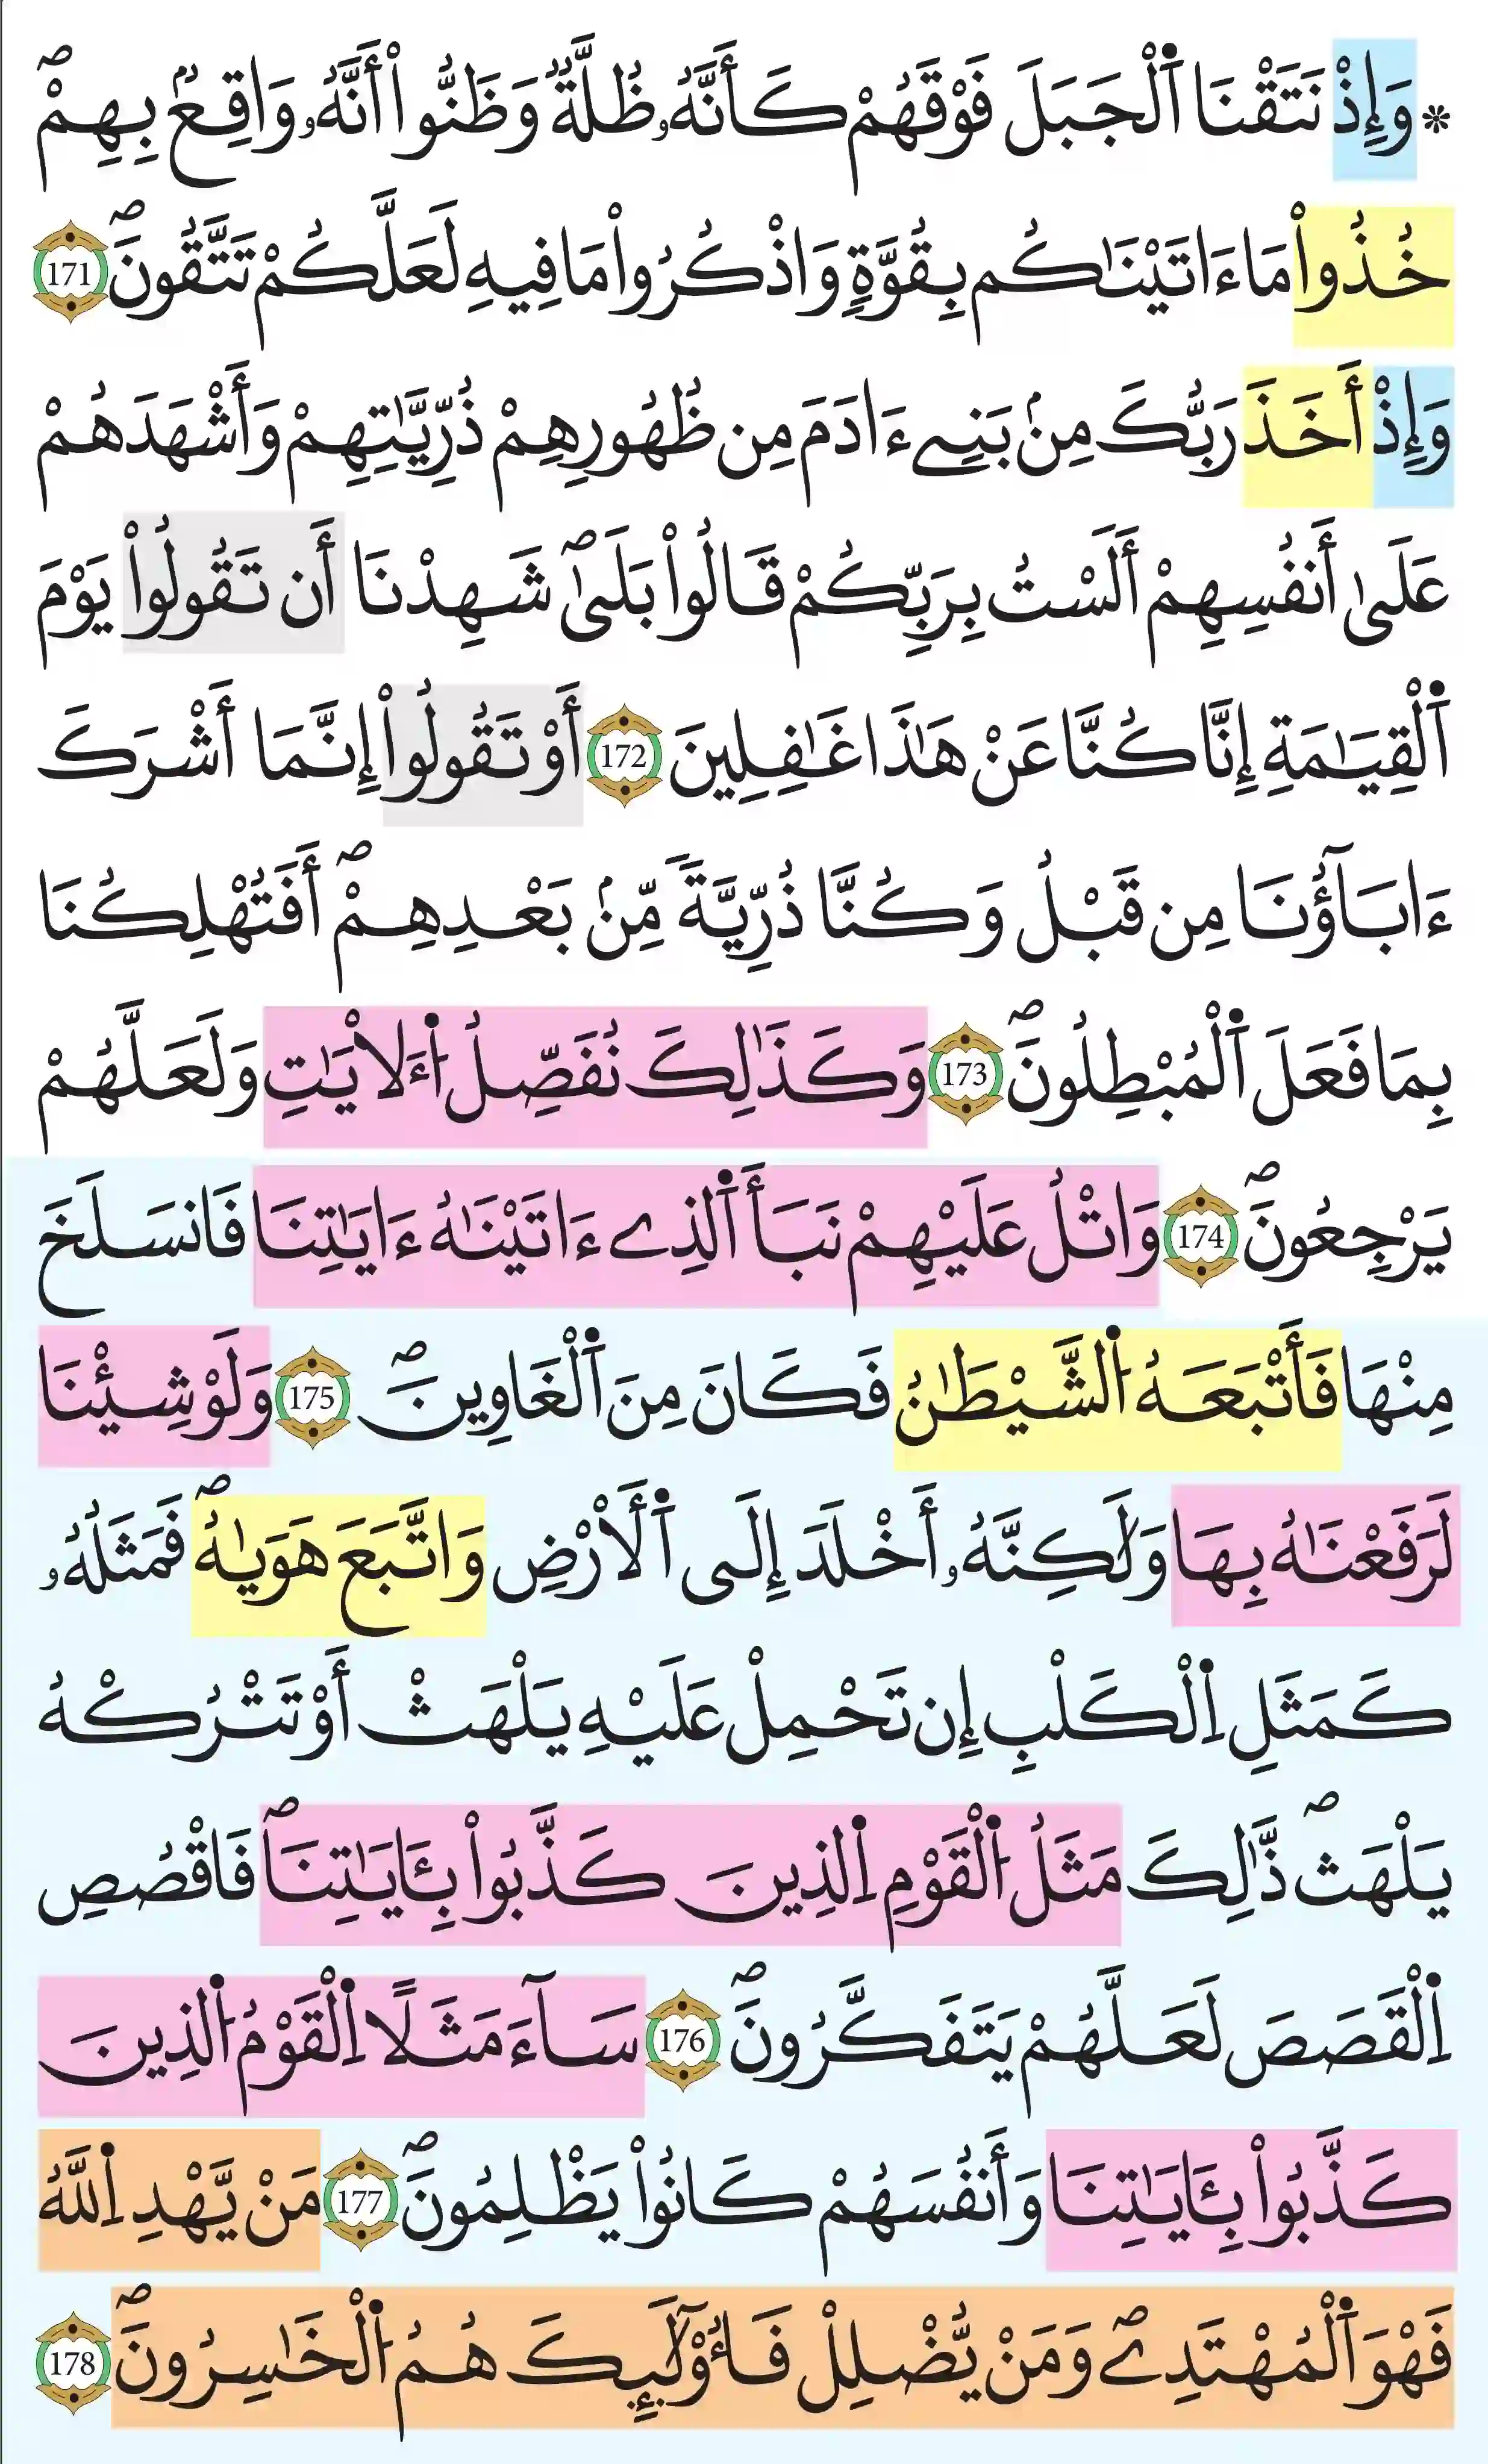 * وَإِذْ نَتَقْنَا اَ۬لْجَبَلَ فَوْقَهُمْ كَأَنَّهُۥ ظُلَّةٞ وَظَنُّواْ أَنَّهُۥ وَاقِعُۢ بِهِمْۖ
خُذُواْ مَا ءَاتَيْنَٰكُم بِقُوَّةٖ وَاذْكُرُواْ مَا فِيهِ لَعَلَّكُمْ تَتَّقُونَۖ 171
وَإِذْ أَخَذَ رَبُّكَ مِنۢ بَنِےٓ ءَادَمَ مِن ظُهُورِهِمْ ذُرِّيَّٰتِهِمْ وَأَشْهَدَهُمْ
عَلَىٰٓ أَنفُسِهِمْ أَلَسْتُ بِرَبِّكُمْ قَالُواْ بَلَىٰۖ شَهِدْنَا أَن تَقُولُواْ يَوْمَ
اَ۬لْقِيَٰمَةِ إِنَّا كُنَّا عَنْ هَٰذَا غَٰفِلِينَ 172 أَوْ تَقُولُواْ إِنَّمَا أَشْرَكَ
ءَابَآؤُنَا مِن قَبْلُ وَكُنَّا ذُرِّيَّةٗ مِّنۢ بَعْدِهِمْۖ أَفَتُهْلِكُنَا
بِمَا فَعَلَ اَ۬لْمُبْطِلُونَۖ 173 وَكَذَٰلِكَ نُفَصِّلُ اُ۬لَأيَٰتِ وَلَعَلَّهُمْ
يَرْجِعُونَۖ 174 وَاتْلُ عَلَيْهِمْ نَبَأَ اَ۬لذِے ءَاتَيْنَٰهُ ءَايَٰتِنَا فَانسَلَخَ
مِنْهَا فَأَتْبَعَهُ اُ۬لشَّيْطَٰنُ فَكَانَ مِنَ اَ۬لْغَاوِينَۖ 175 وَلَوْ شِئْنَا
لَرَفَعْنَٰهُ بِهَا وَلَٰكِنَّهُۥ أَخْلَدَ إِلَى اَ۬لْأَرْضِ وَاتَّبَعَ هَوَىٰهُۖ فَمَثَلُهُۥ
كَمَثَلِ اِ۬لْكَلْبِ إِن تَحْمِلْ عَلَيْهِ يَلْهَثْ أَوْ تَتْرُكْهُ
يَلْهَثۖ ذَّٰلِكَ مَثَلُ اُ۬لْقَوْمِ اِ۬لذِينَ كَذَّبُواْ بِـَٔايَٰتِنَاۖ فَاقْصُصِ
اِ۬لْقَصَصَ لَعَلَّهُمْ يَتَفَكَّرُونَۖ 176 سَآءَ مَثَلًا اِ۬لْقَوْمُ اُ۬لذِينَ
كَذَّبُواْ بِـَٔايَٰتِنَا وَأَنفُسَهُمْ كَانُواْ يَظْلِمُونَۖ 177 مَنْ يَّهْدِ اِ۬للَّهُ
فَهْوَ اَ۬لْمُهْتَدِےۖ وَمَنْ يُّضْلِلْ فَأُوْلَٰٓئِكَ هُمُ اُ۬لْخَٰسِرُونَۖ 178